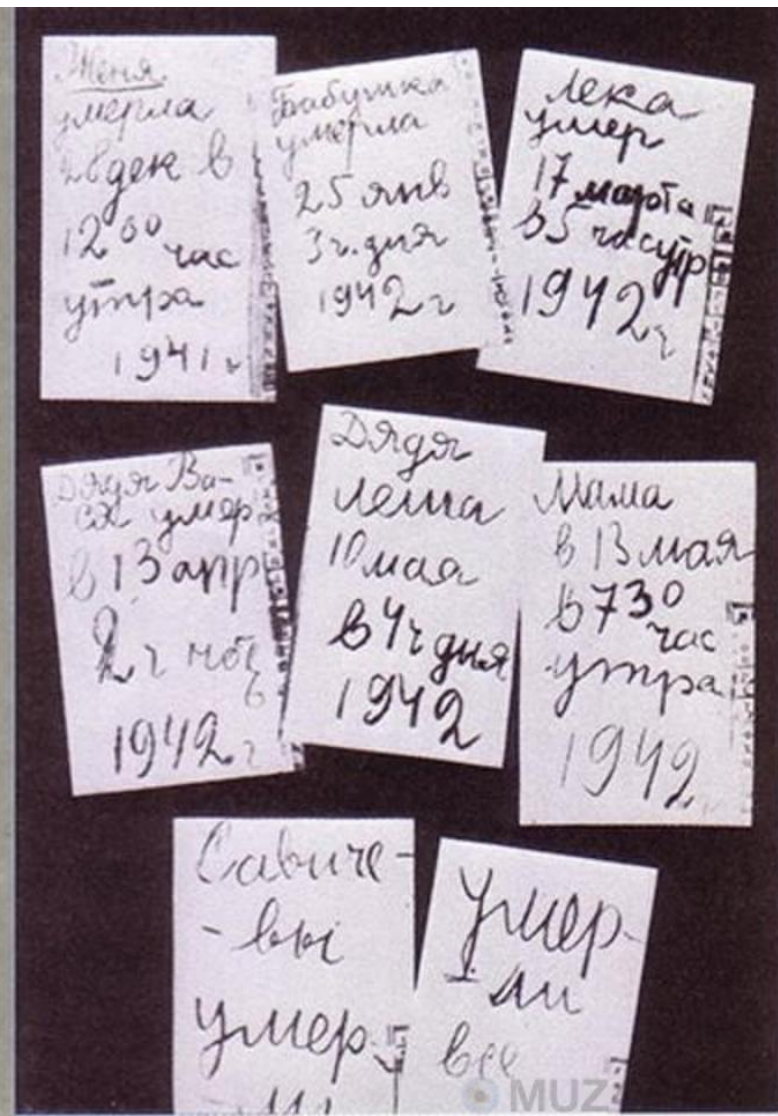 Женя
умерла
28 дек в
12 00 час
утра
1941 г
Бабушка
умерла
25 янв
3 ч. дня
1942 г
Лека
умер
17 марта
в 5 час утр
1942 г
Дядя Ва-
ся умер
в 13 апр
2 ч ноч
1942 г
Дядя
Леша
10 мая
в 4 ч дня
1942
Мама
в 13 мая
в 7 30
час
утра
1942 г
Савиче-
-вы
умер
ли
Умер-
-ли
все
MUZ